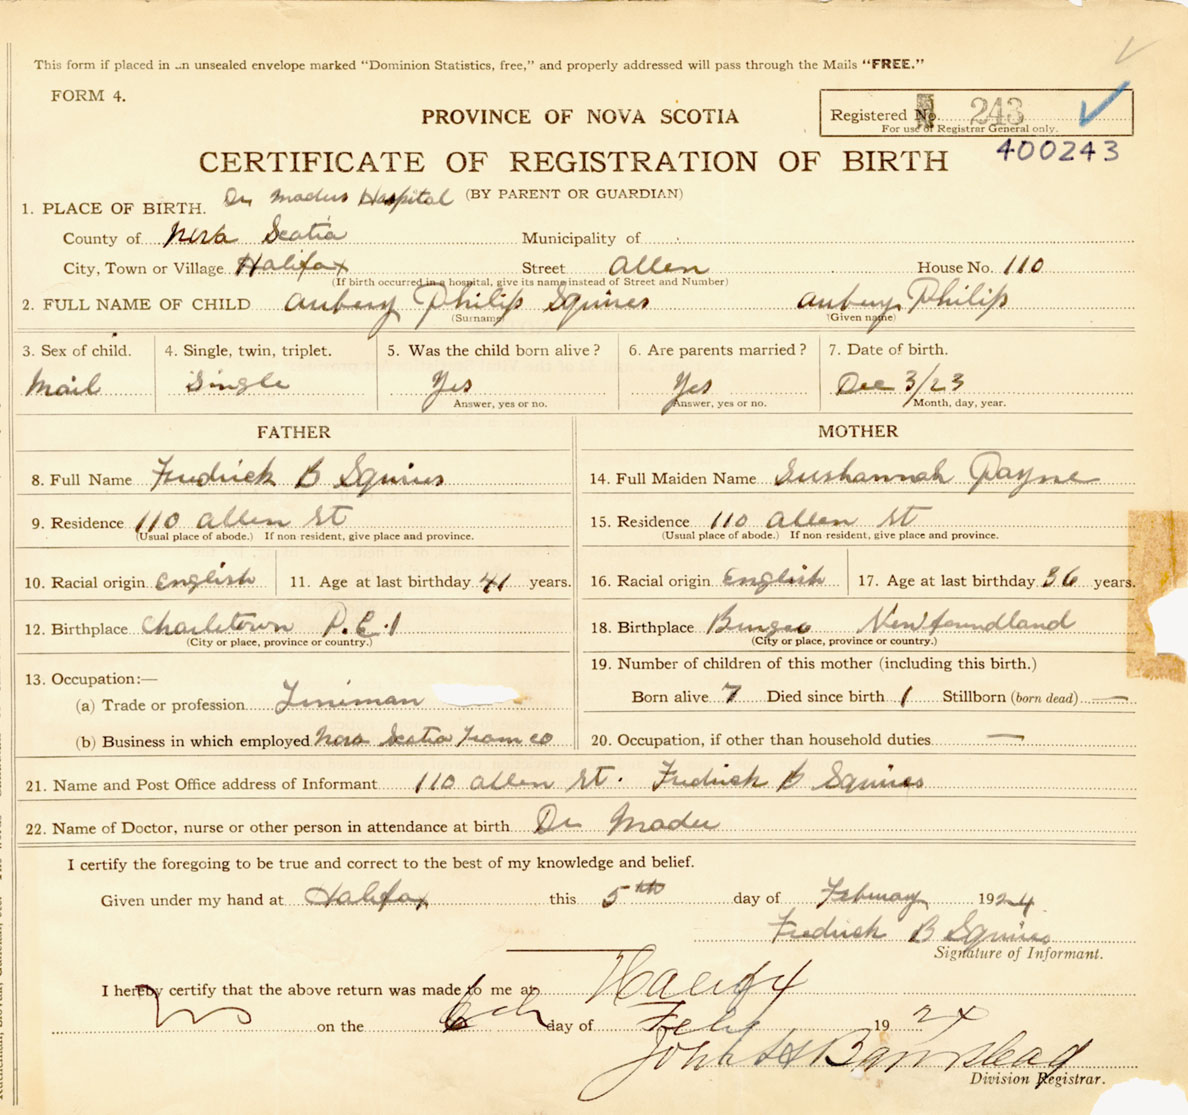 This form if placed in an unsealed envelope marked "Dominion Statistics, free," and properly addressed will pass through the Mails "FREE."
FORM 4.
PROVINCE OF NOVA SCOTIA
Registered No. 243
For use of Registrar General only.
400243
CERTIFICATE OF REGISTRATION OF BIRTH
(BY PARENT OR GUARDIAN)
1. PLACE OF BIRTH. Dr Maders Hospital
County of Nova Scotia Municipality of
City, Town or Village Halifax Street Allen House No. 110
(If birth occurred in a hospital, give its name instead of Street and Number)
2. FULL NAME OF CHILD Aubery Philip Squires Aubery Philip
(Surname) (Given name)
3. Sex of child. 4. Single, twin, triplet. 5. Was the child born alive? 6. Are parents married? 7. Date of birth.
Mail Single Yes Yes Dec 3/23
Answer, yes or no. Answer, yes or no. Month, day, year.
FATHER MOTHER
8. Full Name Fredrick B Squires 14. Full Maiden Name Sushannah Payne
9. Residence 110 Allen St 15. Residence 110 Allen St
(Usual place of abode.) If non resident, give place and province. (Usual place of abode.) If non resident, give place and province.
10. Racial origin English 11. Age at last birthday 41 years. 16. Racial origin English 17. Age at last birthday 36 years.
12. Birthplace Charletown P.E.I 18. Birthplace Newfoundland
(City or place, province or country.) (City or place, province or country.)
19. Number of children of this mother (including this birth.)
13. Occupation:—
(a) Trade or profession Liniman Born alive 7 Died since birth 1 Stillborn (born dead) —
(b) Business in which employed Nova Scotia Tram co 20. Occupation, if other than household duties —
21. Name and Post Office address of Informant 110 Allen St. Fredrick B Squires
22. Name of Doctor, nurse or other person in attendance at birth Dr Mader
I certify the foregoing to be true and correct to the best of my knowledge and belief.
Given under my hand at Halifax this 5th day of Febuary 1924
Fredrick B Squires
Signature of Informant.
I hereby certify that the above return was made to me at Halifax
on the 6th day of Feby 192
John H
Division Registrar.